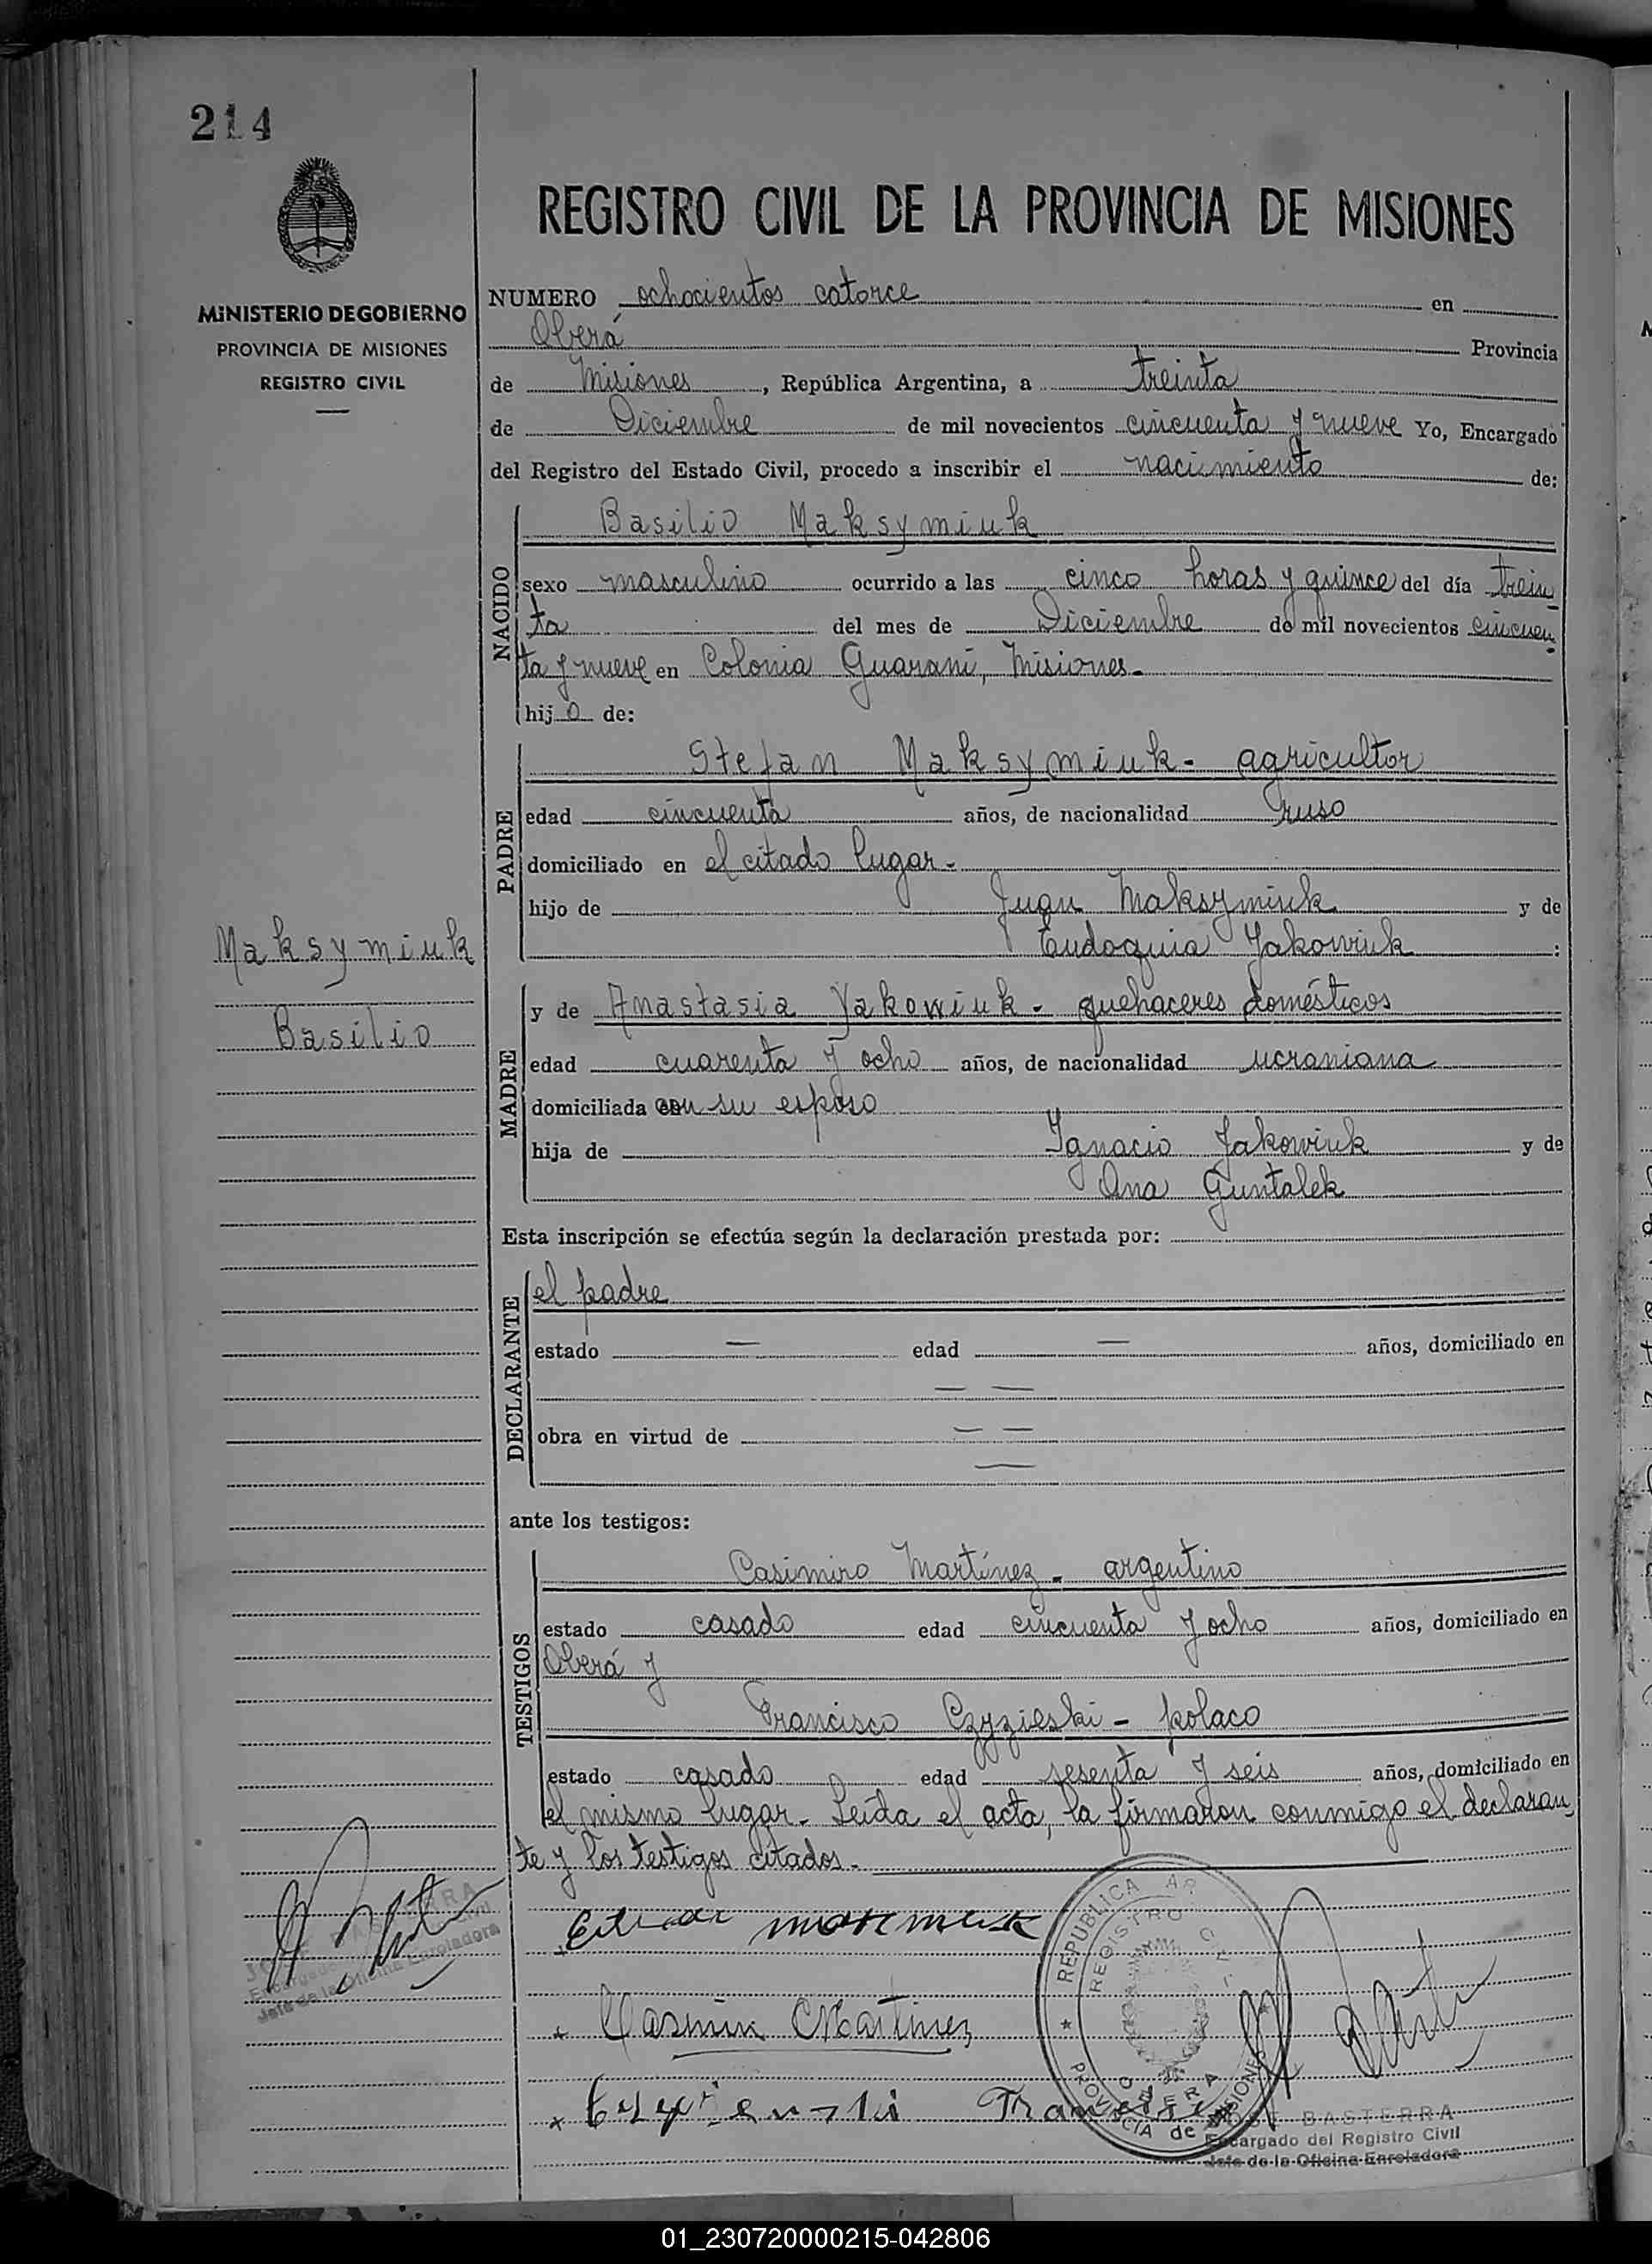 214
MINISTERIO DE GOBIERNO
PROVINCIA DE MISIONES
REGISTRO CIVIL
REGISTRO CIVIL DE LA PROVINCIA DE MISIONES
NUMERO ochocientos catorce en
Oberá Provincia
de Misiones, República Argentina, a treinta
de Diciembre de mil novecientos cincuenta y nueve Yo, Encargado
del Registro del Estado Civil, procedo a inscribir el nacimiento de:
NACIDO
Basilio Maksymiuk
sexo masculino ocurrido a las cinco horas y quince del día trein
ta del mes de Diciembre de mil novecientos cincuen
ta y nueve en Colonia Guaraní, Misiones.
hijo de:
PADRE
Stefan Maksymiuk - agricultor
edad cincuenta años, de nacionalidad ruso
domiciliado en el citado lugar -
hijo de Juan Maksymiuk y de
Eudoquia Jakowiuk :
Maksymiuk
Basilio
MADRE
y de Anastasia Yakowiuk - quehaceres domésticos
edad cuarenta y ocho años, de nacionalidad ucraniana
domiciliada con su esposo
hija de Ignacio Jakowiuk y de
Ana Guntalek
Esta inscripción se efectúa según la declaración prestada por:
DECLARANTE
el padre
estado — edad — años, domiciliado en
— —
obra en virtud de — —
—
ante los testigos:
TESTIGOS
Casimiro Martínez - argentino
estado casado edad cincuenta y ocho años, domiciliado en
Oberá y
Francisco Czyzieski - polaco
estado casado edad sesenta y seis años, domiciliado en
el mismo lugar - Leída el acta, la firmaron conmigo el declaran
te y los testigos citados.-
Casimin Martinez
REPUBLICA AR
REGISTRO CIVIL
OBERA
PROVINCIA de MISIONES
BASTERRA
Encargado del Registro Civil
Jefe de la Oficina Enroladora
Jefe de la Oficina Enroladora
01_230720000215-042806